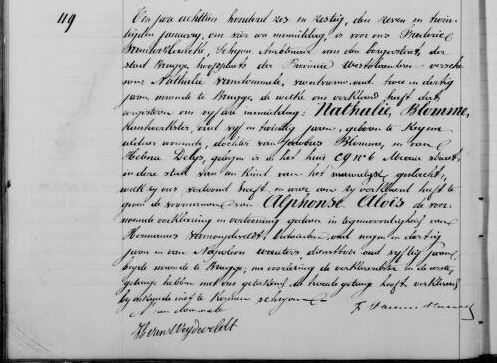 119
Een jaar achttien honderd zes en zestig, den zeven en twin-
tigsten january, om vier ure namiddag, is voor ons Frederic
Schepen Ambtenaer van den burgerstaet, der
stad Brugge, hoofdplaets der Provincie Westvlaanderen versche-
nen Nathalie vroedvrouw oud twee en dertig
jaren, wonende te Brugge, de welke ons verklaard heeft dat
eergisteren om vyf ure namiddag: Nathalie, Blomme,
kantwerkster, oud vyf en twintig jaren, geboren te Keyem
aldaer wonende, dochter van Jacobus Blomme, en van
Helena gelegen is in het huis C9 n° 6 straet,
in deze stad van een kind van het mannelyk geslacht,
welk zy ons vertoond heeft, en waer aen zy verklaert heeft te
geven de voornamen van Alphonse Aloïs de voor-
noemde verklaring en vertooning gedaen in tegenwoordigheid van
Hermanus Vanweydeveldt, oud negen en dertig
jaren en van Napoleon Wauters, dienstbode oud vyftig jaren
beyde wonende te Brugge, na voorlezing de verklaerster en de eerste
getuige hebben met ons geteekend, de tweede getuig heeft verklaerd
niet te konnen schryven
H. Van Weydeveldt